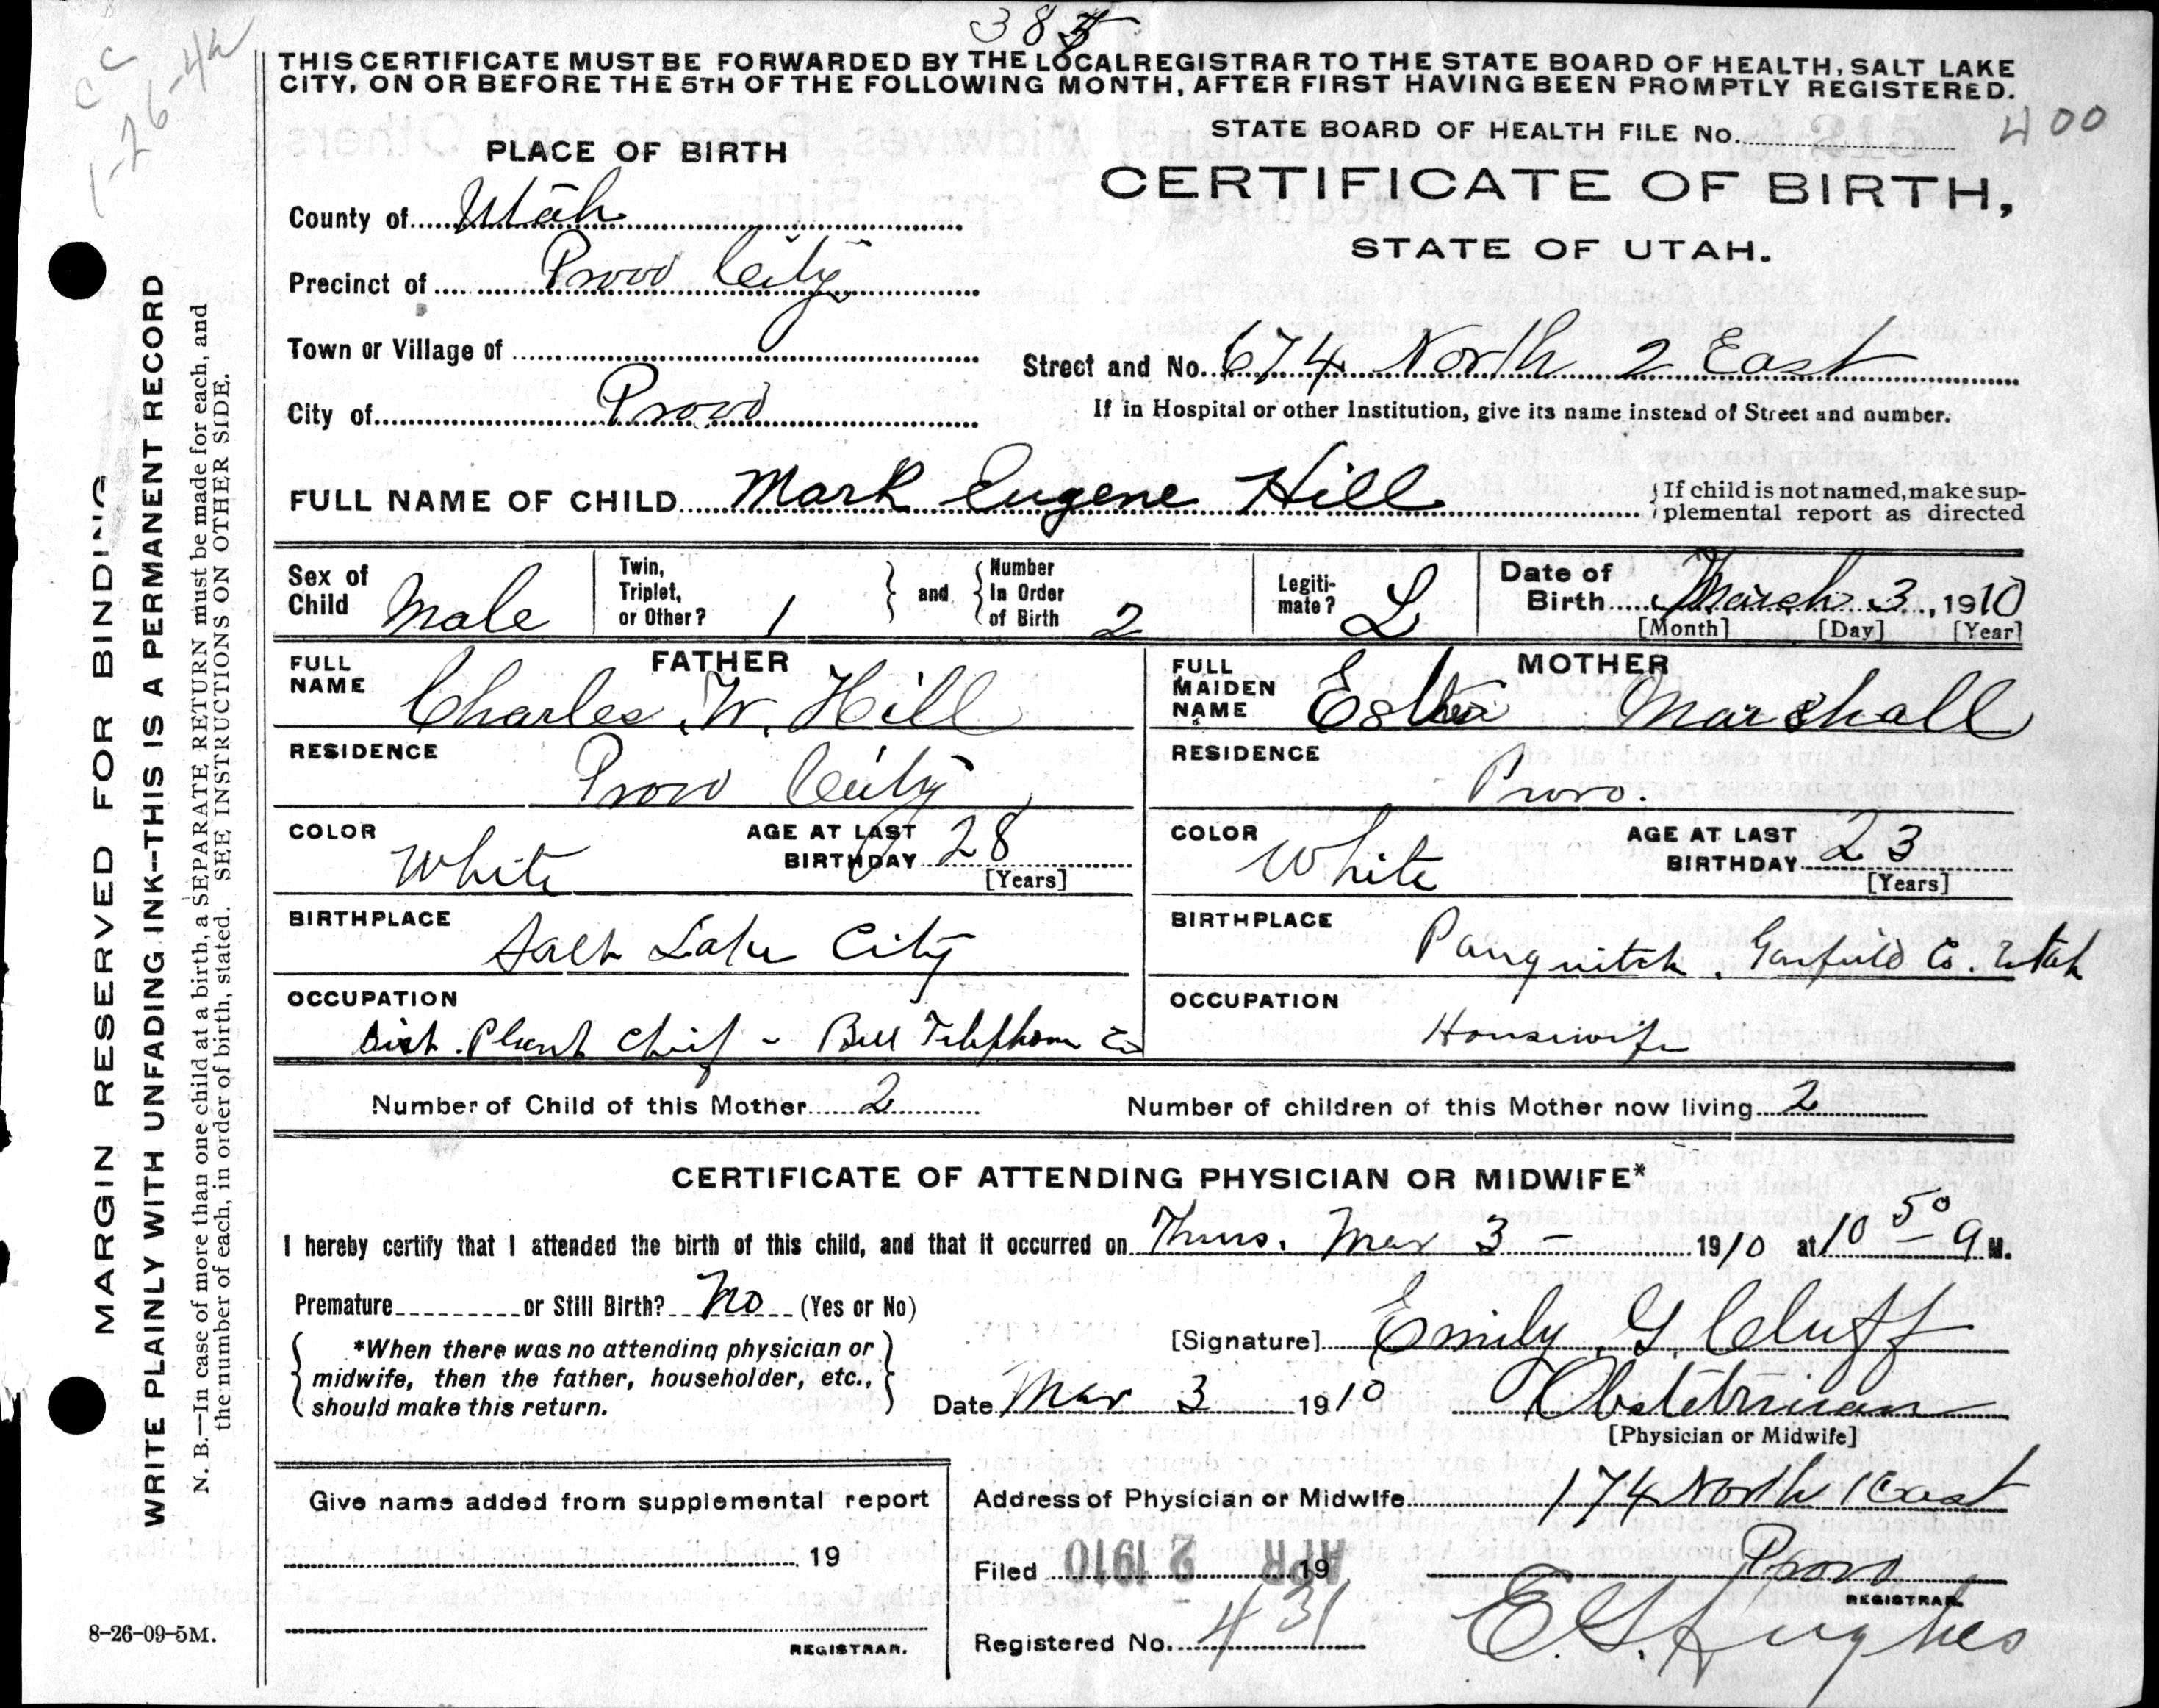 385
THIS CERTIFICATE MUST BE FORWARDED BY THE LOCAL REGISTRAR TO THE STATE BOARD OF HEALTH, SALT LAKE
CITY, ON OR BEFORE THE 5TH OF THE FOLLOWING MONTH, AFTER FIRST HAVING BEEN PROMPTLY REGISTERED.
cc
1-26-42
STATE BOARD OF HEALTH FILE No. 400
PLACE OF BIRTH
CERTIFICATE OF BIRTH,
STATE OF UTAH.
County of Utah
Precinct of Provo City
Town or Village of
Street and No. 674 North 2 East
City of Provo
If in Hospital or other Institution, give its name instead of Street and number.
FULL NAME OF CHILD Mark Eugene Hill
{If child is not named, make sup-
plemental report as directed
Sex of Child Male
Twin, Triplet, or Other? 1
and
Number In Order of Birth 2
Legiti-mate? L
Date of Birth March 3, 1910
[Month] [Day] [Year]
FATHER
FULL NAME Charles W. Hill
RESIDENCE Provo City
COLOR White
AGE AT LAST BIRTHDAY 28
[Years]
BIRTHPLACE Salt Lake City
OCCUPATION Dist. Plant Chief - Bell Telephone Co
MOTHER
FULL MAIDEN NAME Esther Marshall
RESIDENCE Provo.
COLOR White
AGE AT LAST BIRTHDAY 23
[Years]
BIRTHPLACE Panguitch, Garfield Co. Utah
OCCUPATION Housewife
Number of Child of this Mother 2
Number of children of this Mother now living 2
CERTIFICATE OF ATTENDING PHYSICIAN OR MIDWIFE*
I hereby certify that I attended the birth of this child, and that it occurred on Thurs. Mar 3 - 1910 at 10 50 a M.
Premature or Still Birth? No (Yes or No)
*When there was no attending physician or
midwife, then the father, householder, etc.,
should make this return.
[Signature] Emily G. Cluff
Date Mar 3 1910
Obstetrician
[Physician or Midwife]
Give name added from supplemental report
19
REGISTRAR.
Address of Physician or Midwife 174 North 1 East
Provo
Filed APR 2 1910 19
REGISTRAR.
E. G. Hughes
Registered No. 431
8-26-09-5M.
MARGIN RESERVED FOR BINDING
WRITE PLAINLY WITH UNFADING INK--THIS IS A PERMANENT RECORD
N. B.—In case of more than one child at a birth, a SEPARATE RETURN must be made for each, and
the number of each, in order of birth, stated. SEE INSTRUCTIONS ON OTHER SIDE.